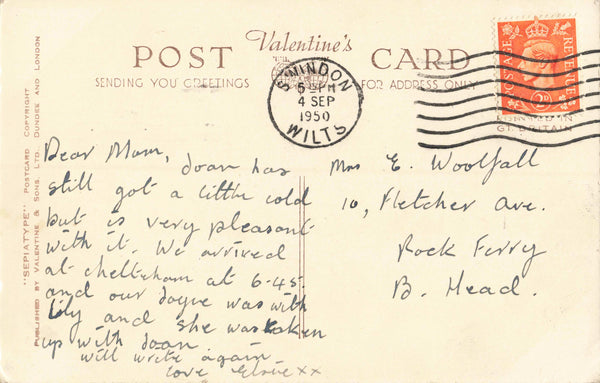 POST Valentine's CARD
SENDING YOU GREETINGS
FOR ADDRESS ONLY
SWINDON
5 - PM
4 SEP
1950
WILTS
POSTAGE REVENUE
PRINTED IN
GT. BRITAIN
"SEPIATYPE" POSTCARD COPYRIGHT
PUBLISHED BY VALENTINE & SONS. LTD. DUNDEE AND LONDON
Dear Mam, Joan has
still got a little cold
but is very pleasant
with it. We arrived
at cheltenham at 6-45.
and our was with
Lily and she was taken
up with Joan
will write again
love Elsie xx
Mrs E. Woolfall
10, Fletcher Ave.
Rock Ferry
B. Head.